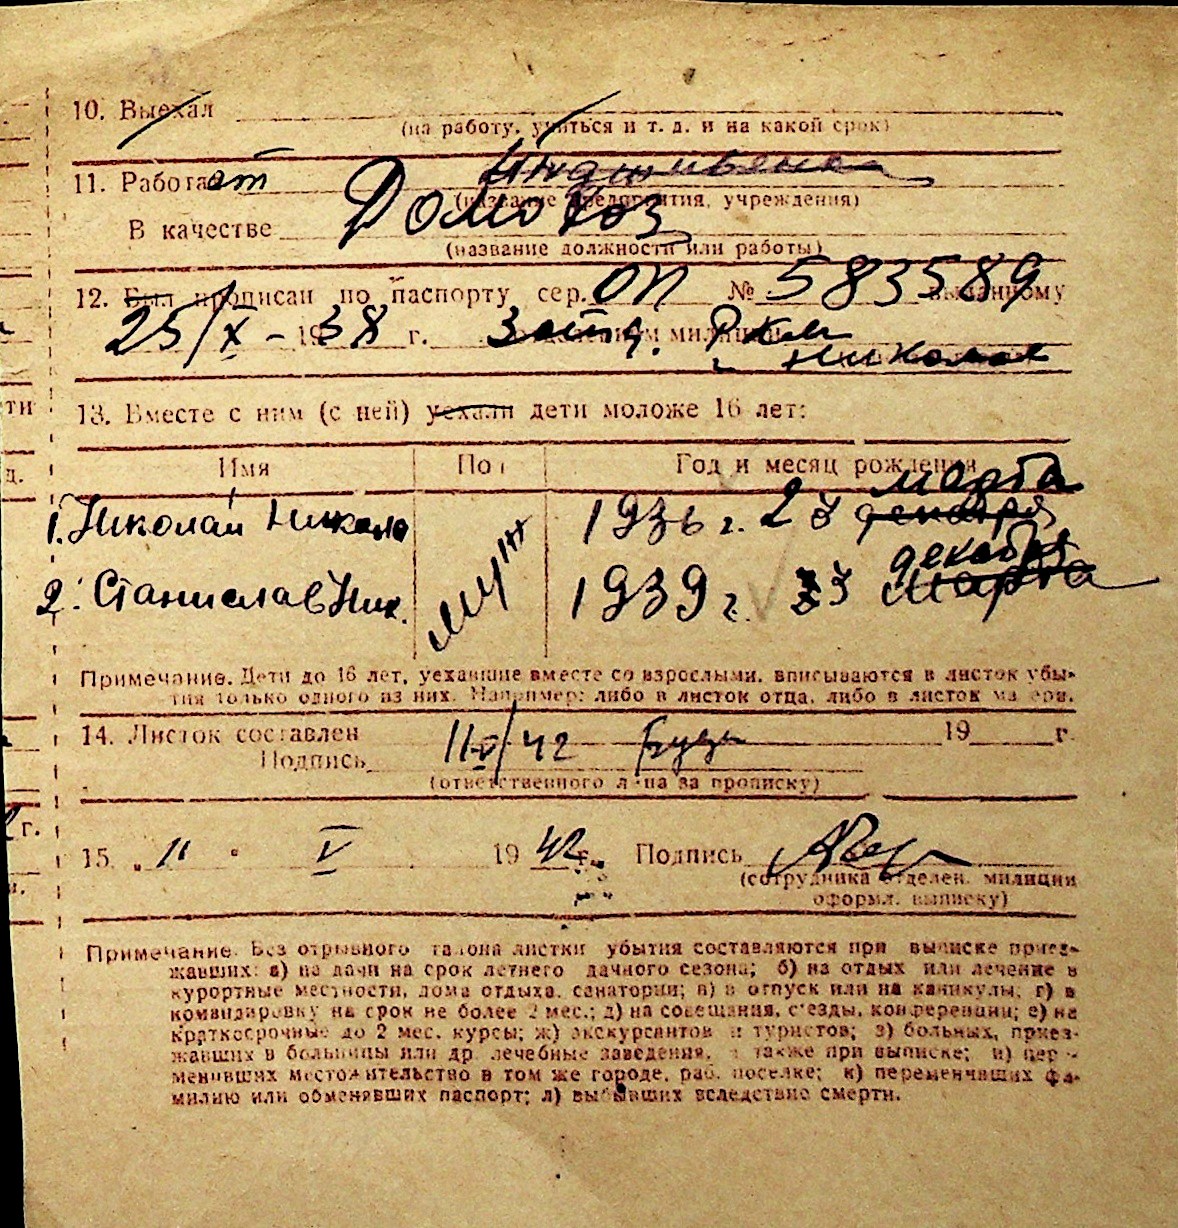 10. Выехал
(на работу, учиться и т. д. и на какой срок)
11. Работает
(название предприятия, учреждения)
В качестве Домохоз
(название должности или работы)
12. Был прописан по паспорту сер. ОП № 583589 выданному
25/X - 1938 г. отделением милиции Р. К. М.
13. Вместе с ним (с ней) уехали дети моложе 16 лет:
Имя Пол Год и месяц рождения
марта
1. Николай Никола 1936 г. 23 декабря
декабря
2. Станислав Ник. муж 1939 г. 33 марта
Примечание. Дети до 16 лет, уехавшие вместе со взрослыми, вписываются в листок убы-
тия только одного из них. Например: либо в листок отца, либо в листок матери.
14. Листок составлен 11/V/42 19 г.
Подпись
(ответственного лица за прописку)
15. „11" V 1942 г. Подпись
(сотрудника отделен. милиции
оформл. выписку)
Примечание. Без отрывного талона листки убытия составляются при выписке приез-
жавших: а) на дачи на срок летнего дачного сезона; б) на отдых или лечение в
курортные местности, дома отдыха, санатории; в) в отпуск или на каникулы; г) в
командировку на срок не более 2 мес.; д) на совещания, с'езды, конференции; е) на
краткосрочные до 2 мес. курсы; ж) экскурсантов и туристов; з) больных, приез-
жавших в больницы или др. лечебные заведения, а также при выписке; и) пере-
менивших местожительство в том же городе, раб. поселке; к) переменивших фа-
милию или обменявших паспорт; л) выбывших вследствие смерти.